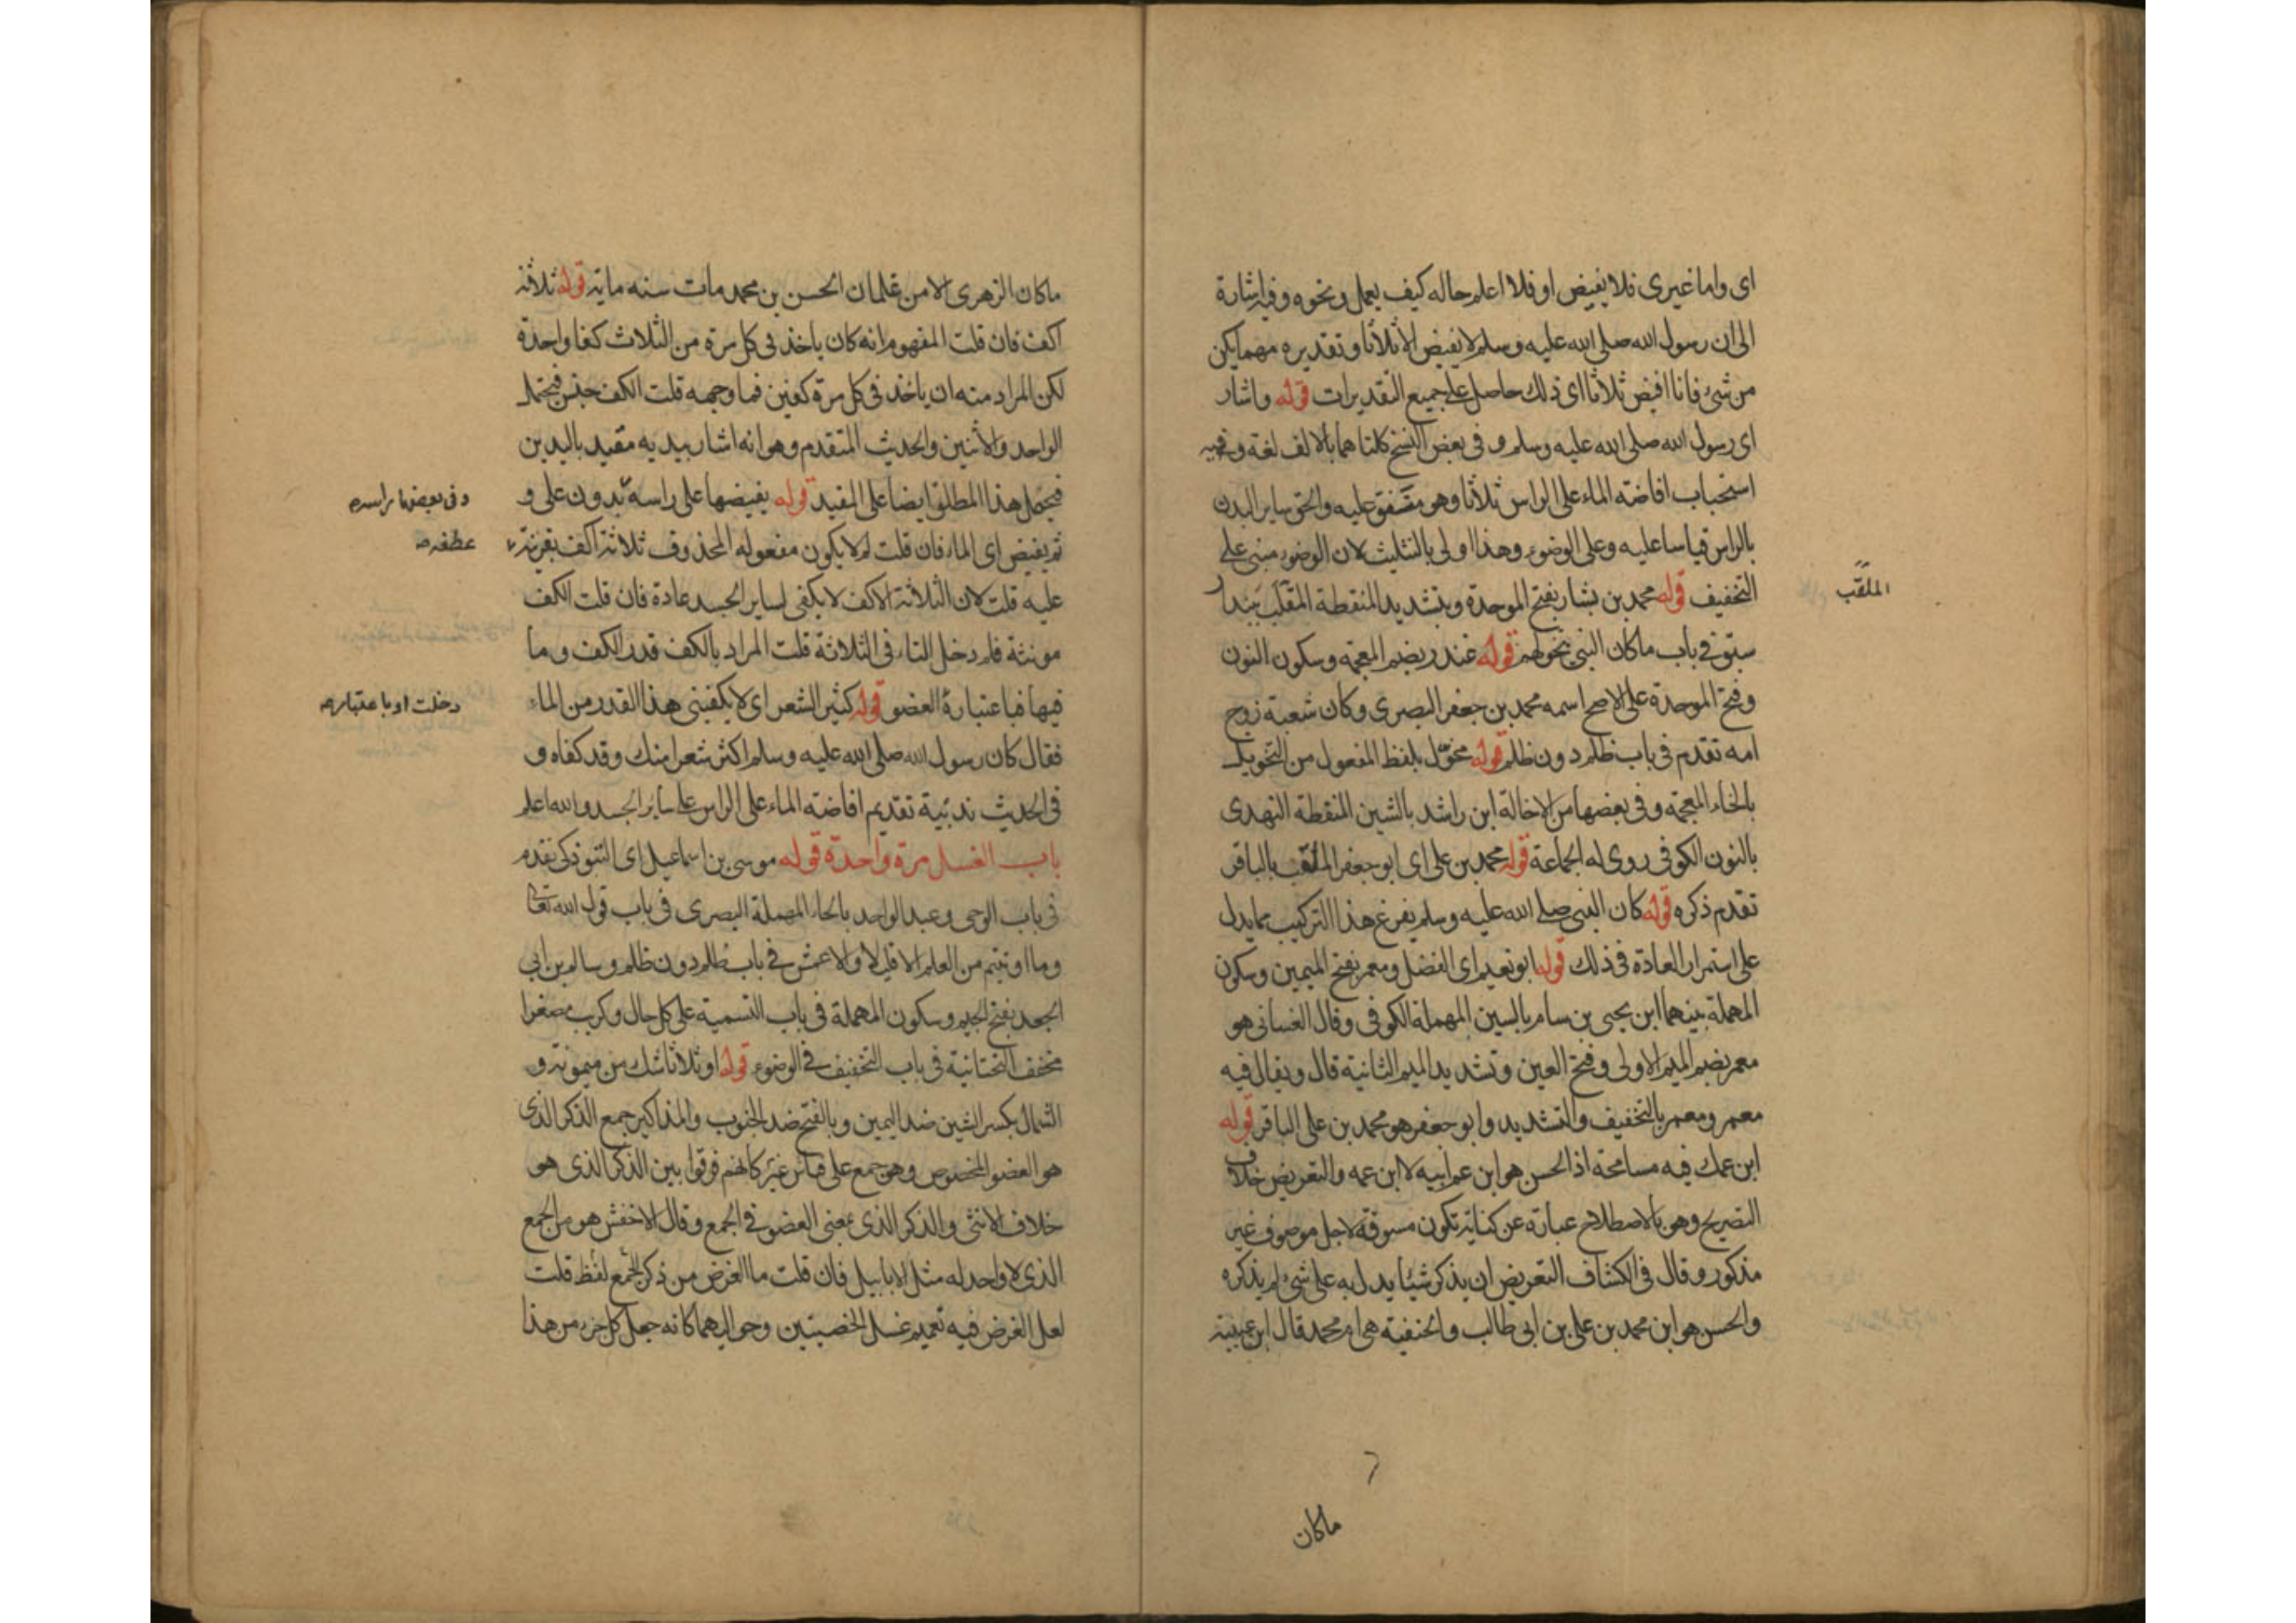 اى واما غيرى فلا يفيض او فلا اعلم حاله كيف يعمل ونحوه وفيه اشارة
الى ان رسول الله صلى الله عليه وسلم لا يفيض الا ثلاثا وتقديره مهما يكن
من شئ فانا افيض ثلاثا اى ذلك حاصل على جميع التقديرات قوله واشار
اى رسول الله صلى الله عليه وسلم وفى بعض النسخ كلتاهما بالالف لغة وفيه
استحباب افاضة الماء على الراس ثلاثا وهو متفق عليه والحق ساير البدن
بالراس قياسا عليه وعلى الوضوء وهذا اولى بالتثليث لان الوضوء مبنى على
التخفيف قوله محمد بن بشار بفتح الموحدة وبتشديد المنقطة المقلب ببندار
الملقب
سبق فى باب ما كان النبى يتخولهم قوله غندر بضم المعجمة وسكون النون
وفتح الموحدة على الاصح اسمه محمد بن جعفر البصرى وكان شعبة زوج
امه تقدم فى باب ظلم دون ظلم قوله مخول بلفظ المفعول من التخويل
بالخاء المعجمة وفى بعضها من الاخالة ابن راشد بالشين المنقطة النهدى
بالنون الكوفى روى له الجماعة قوله محمد بن على اى ابو جعفر الملقب بالباقر
تقدم ذكره قوله كان النبى صلى الله عليه وسلم يفرغ هذا التركيب مما يدل
على استمرار العادة فى ذلك قوله ابو نعيم اى الفضل ومعمر بفتح الميمين وسكون
المهملة بينهما ابن يحيى بن سام بالسين المهملة الكوفى وقال الغسانى هو
معمر بضم الميم الاولى وفتح العين وتشديد الميم الثانية قال ويقال فيه
معمر ومعمر بالتخفيف والتشديد وابو جعفر هو محمد بن على الباقر قوله
ابن عمك فيه مسامحة اذ الحسن هو ابن عم ابيه لا ابن عمه والتعريض خلاف
التصريح وهو بالاصطلاح عبارة عن كناية تكون مسوقة لاجل موصوف غير
مذكور وقال فى الكشاف التعريض ان يذكر شيئا يدل به على شئ لم يذكره
والحسن هو ابن محمد بن على بن ابى طالب والحنفية هى ام محمد قال ابن عيينة
ما كان
ما كان الزهرى الا من غلمان الحسن بن محمد مات سنه ماية قوله ثلاثة
اكف فان قلت المفهوم انه كان ياخذ فى كل مرة من الثلاث كفا واحدة
لكن المراد منه ان ياخذ فى كل مرة كفين فما وجهه قلت الكف جنس فيحتمل
الواحد والاثنين والحديث المتقدم وهو انه اشار بيديه مقيد باليدين
فيحمل هذا المطلق ايضا على المقيد قوله يفيضها على راسه بدون على و
وفى بعضها براسه
ثم يفيض اى الماء فان قلت لم لا يكون مفعوله المحذوف ثلاثة اكف بقرينة
عطفه
عليه قلت لان الثلاثة الاكف لا يكفى لساير الجسد عادة فان قلت الكف
مونثة فلم دخل التاء فى الثلاثة قلت المراد بالكف قدر الكف وما
فيها فباعتبارة العضو قوله كثير الشعر اى لا يكفينى هذا القدر من الماء
دخلت او باعتبار
فقال كان رسول الله صلى الله عليه وسلم اكثر شعرا منك وقد كفاه و
فى الحديث ندبية تقديم افاضة الماء على الراس على ساير الجسد والله اعلم
باب الغسل مرة واحدة قوله موسى بن اسماعيل اى التبوذكى تقدم
فى باب الوحى وعبد الواحد بالحاء المهملة البصرى فى باب قول الله تعالى
وما اوتيتم من العلم الا قليلا والاعمش فى باب ظلم دون ظلم وسالم بن ابى
الجعد بفتح الجيم وسكون المهملة فى باب التسمية على كل حال وكريب مصغرا
مخفف التحتانية فى باب التخفيف فى الوضوء قوله او ثلاثا شك من ميمونة و
الشمال بكسر الشين ضد اليمين وبالفتح ضد الجنوب والمذاكير جمع الذكر الذى
هو العضو المخصوص وهو جمع على قياس غير كانهم فرقوا بين الذكر الذى هو
خلاف الانثى والذكر الذى بمعنى العضو فى الجمع وقال الاخفش هو من الجمع
الذى لا واحد له مثل الابابيل فان قلت ما الغرض من ذكر الجمع لفظ قلت
لعل الغرض فيه تعميم غسل الخصيتين وحواليهما كانه جعل كل جزء من هذا